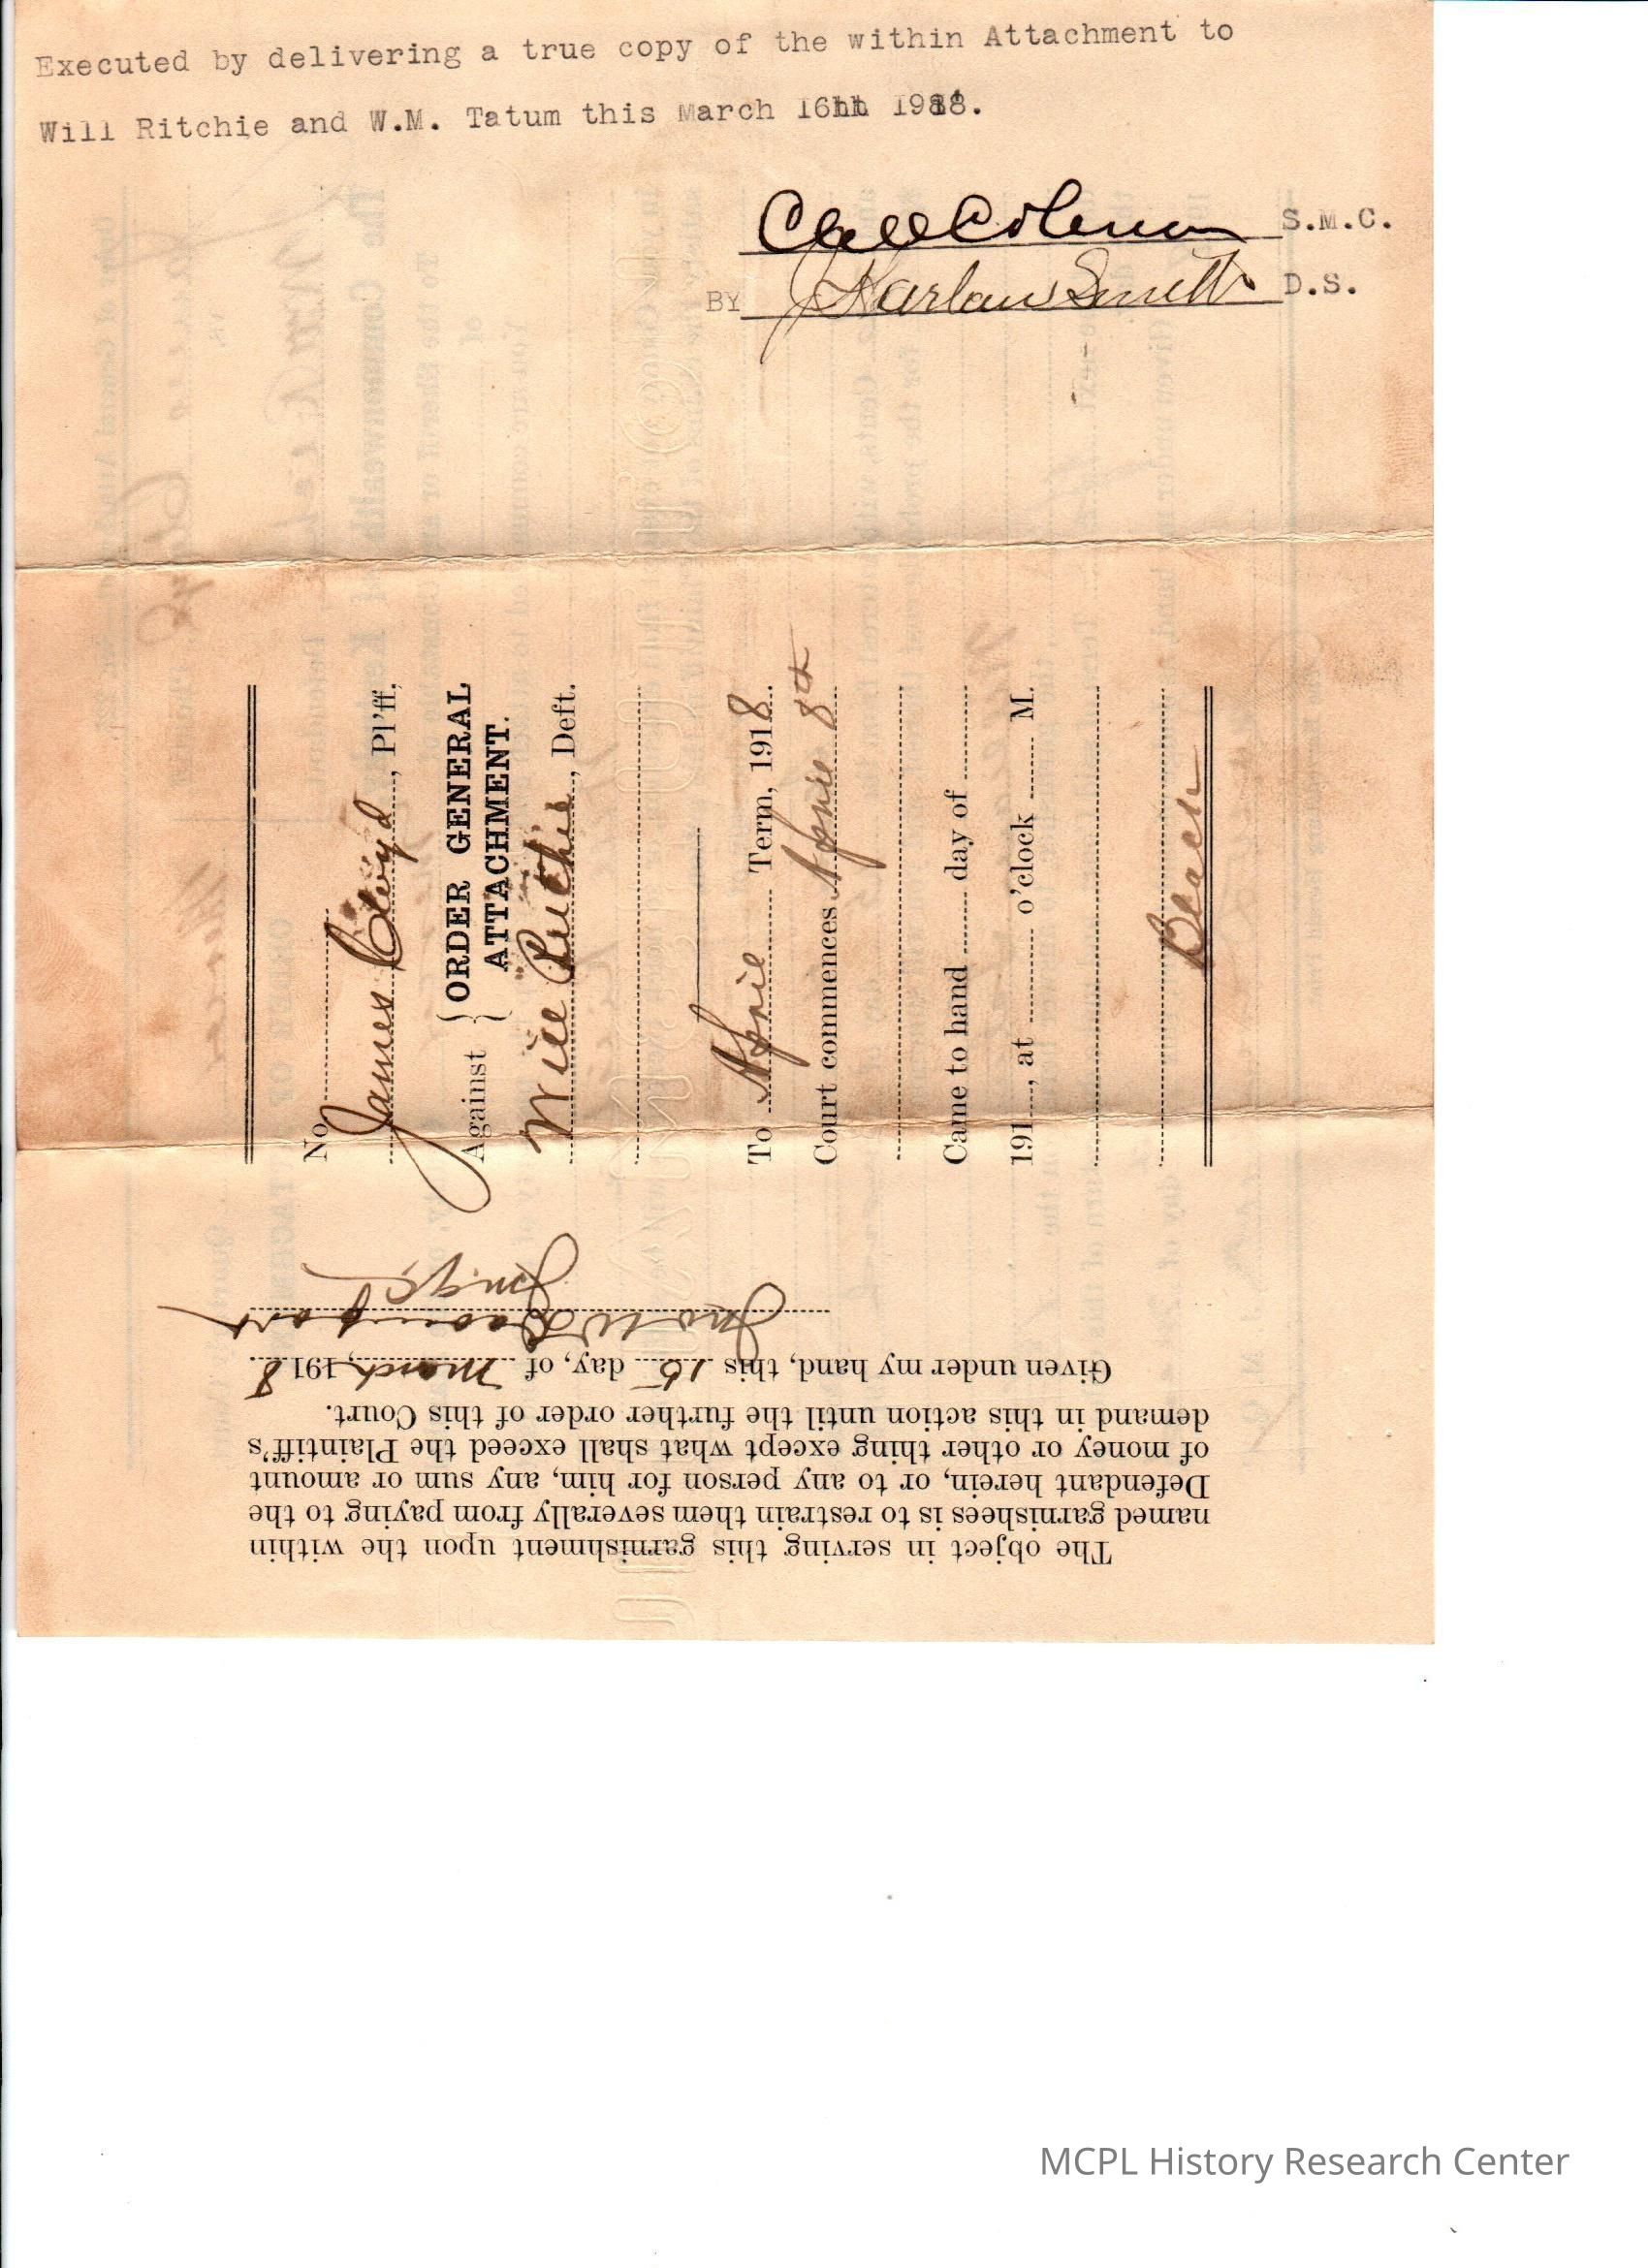 Executed by delivering a true copy of the within Attachment to
Will Ritchie and W.M. Tatum this March 16th 1918.
Coleman S.M.C.
BY J Harlan Smith D.S.
No.
James Cloyd, Pl'ff.
Against { ORDER GENERAL
ATTACHMENT.
Will Ritchie, Deft.
To April Term, 1918.
Court commences April 8th
Came to hand day of
191 , at o'clock M.
Black
The object in serving this garnishment upon the within
named garnishees is to restrain them severally from paying to the
Defendant herein, or to any person for him, any sum or amount
of money or other thing except what shall exceed the Plaintiff's
demand in this action until the further order of this Court.
Given under my hand, this 15 day, of March, 1918.
Jno W
Judge
MCPL History Research Center